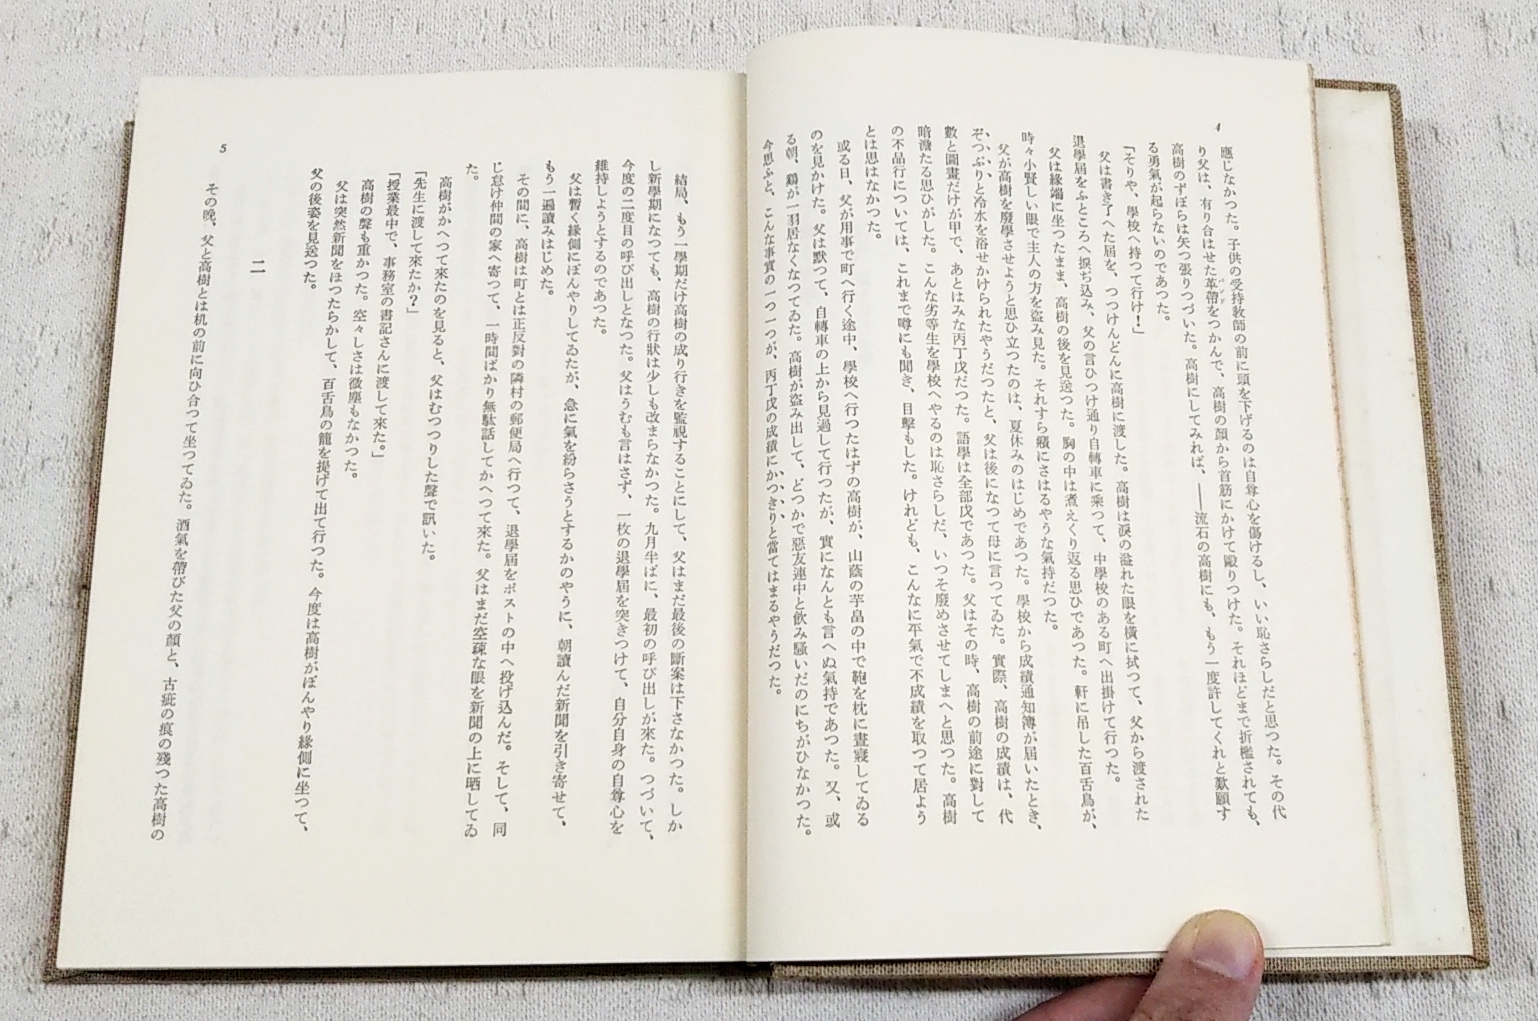 4
應じなかつた。子供の受持敎師の前に頭を下げるのは自尊心を傷けるし、いい恥さらしだと思つた。その代
り父は、有り合はせた革帶をつかんで、高樹の顏から首筋にかけて毆りつけた。それほどまで折檻されても、
高樹のずぼらは矢つ張りつづいた。高樹にしてみれば、――流石の高樹にも、もう一度許してくれと歎願す
る勇氣が起らないのであつた。
「そりや、學校へ持つて行け！」
父は書き了へた屆を、つつけんどんに高樹に渡した。高樹は淚の溢れた眼を橫に拭つて、父から渡された
退學屆をふところへ捩ぢ込み、父の言ひつけ通り自轉車に乘つて、中學校のある町へ出掛けて行つた。
父は緣端に坐つたまま、高樹の後を見送つた。胸の中は煮えくり返る思ひであつた。軒に吊した百舌鳥が、
時々小賢しい眼で主人の方を盜み見た。それすら癪にさはるやうな氣持だつた。
父が高樹を廢學させようと思ひ立つたのは、夏休みのはじめであつた。學校から成績通知簿が屆いたとき、
ぞつぷりと冷水を浴せかけられたやうだつたと、父は後になつて母に言つてゐた。實際、高樹の成績は、代
數と圖畫だけが甲で、あとはみな丙丁戊だつた。語學は全部戊であつた。父はその時、高樹の前途に對して
暗澹たる思ひがした。こんな劣等生を學校へやるのは恥さらしだ、いつそ廢めさせてしまへと思つた。高樹
の不品行については、これまで噂にも聞き、目擊もした。けれども、こんなに平氣で不成績を取つて居よう
とは思はなかつた。
或る日、父が用事で町へ行く途中、學校へ行つたはずの高樹が、山蔭の芋畠の中で鞄を枕に晝寢してゐる
のを見かけた。父は默つて、自轉車の上から見過して行つたが、實になんとも言へぬ氣持であつた。又、或
る朝、鷄が一羽居なくなつてゐた。高樹が盜み出して、どつかで惡友連中と飮み騷いだのにちがひなかつた。
今思ふと、こんな事實の一つ一つが、丙丁戊の成績にかつきりと當てはまるやうだつた。
結局、もう一學期だけ高樹の成り行きを監視することにして、父はまだ最後の斷案は下さなかつた。しか
し新學期になつても、高樹の行狀は少しも改まらなかつた。九月半ばに、最初の呼び出しが來た。つづいて、
今度の二度目の呼び出しとなつた。父はうむも言はさず、一枚の退學屆を突きつけて、自分自身の自尊心を
維持しようとするのであつた。
父は暫く緣側にぼんやりしてゐたが、急に氣を紛らさうとするかのやうに、朝讀んだ新聞を引き寄せて、
もう一遍讀みはじめた。
その間に、高樹は町とは正反對の隣村の郵便局へ行つて、退學屆をポストの中へ投げ込んだ。そして、同
じ怠け仲間の家へ寄つて、一時間ばかり無駄話してかへつて來た。父はまだ空疎な眼を新聞の上に晒してゐ
た。
高樹がかへつて來たのを見ると、父はむつつりした聲で訊いた。
「先生に渡して來たか？」
「授業最中で、事務室の書記さんに渡して來た。」
高樹の聲も重かつた。空々しさは微塵もなかつた。
父は突然新聞をほつたらかして、百舌鳥の籠を提げて出て行つた。今度は高樹がぼんやり緣側に坐つて、
父の後姿を見送つた。
二
その晩、父と高樹とは机の前に向ひ合つて坐つてゐた。酒氣を帶びた父の顏と、古疵の痕の殘つた高樹の
5